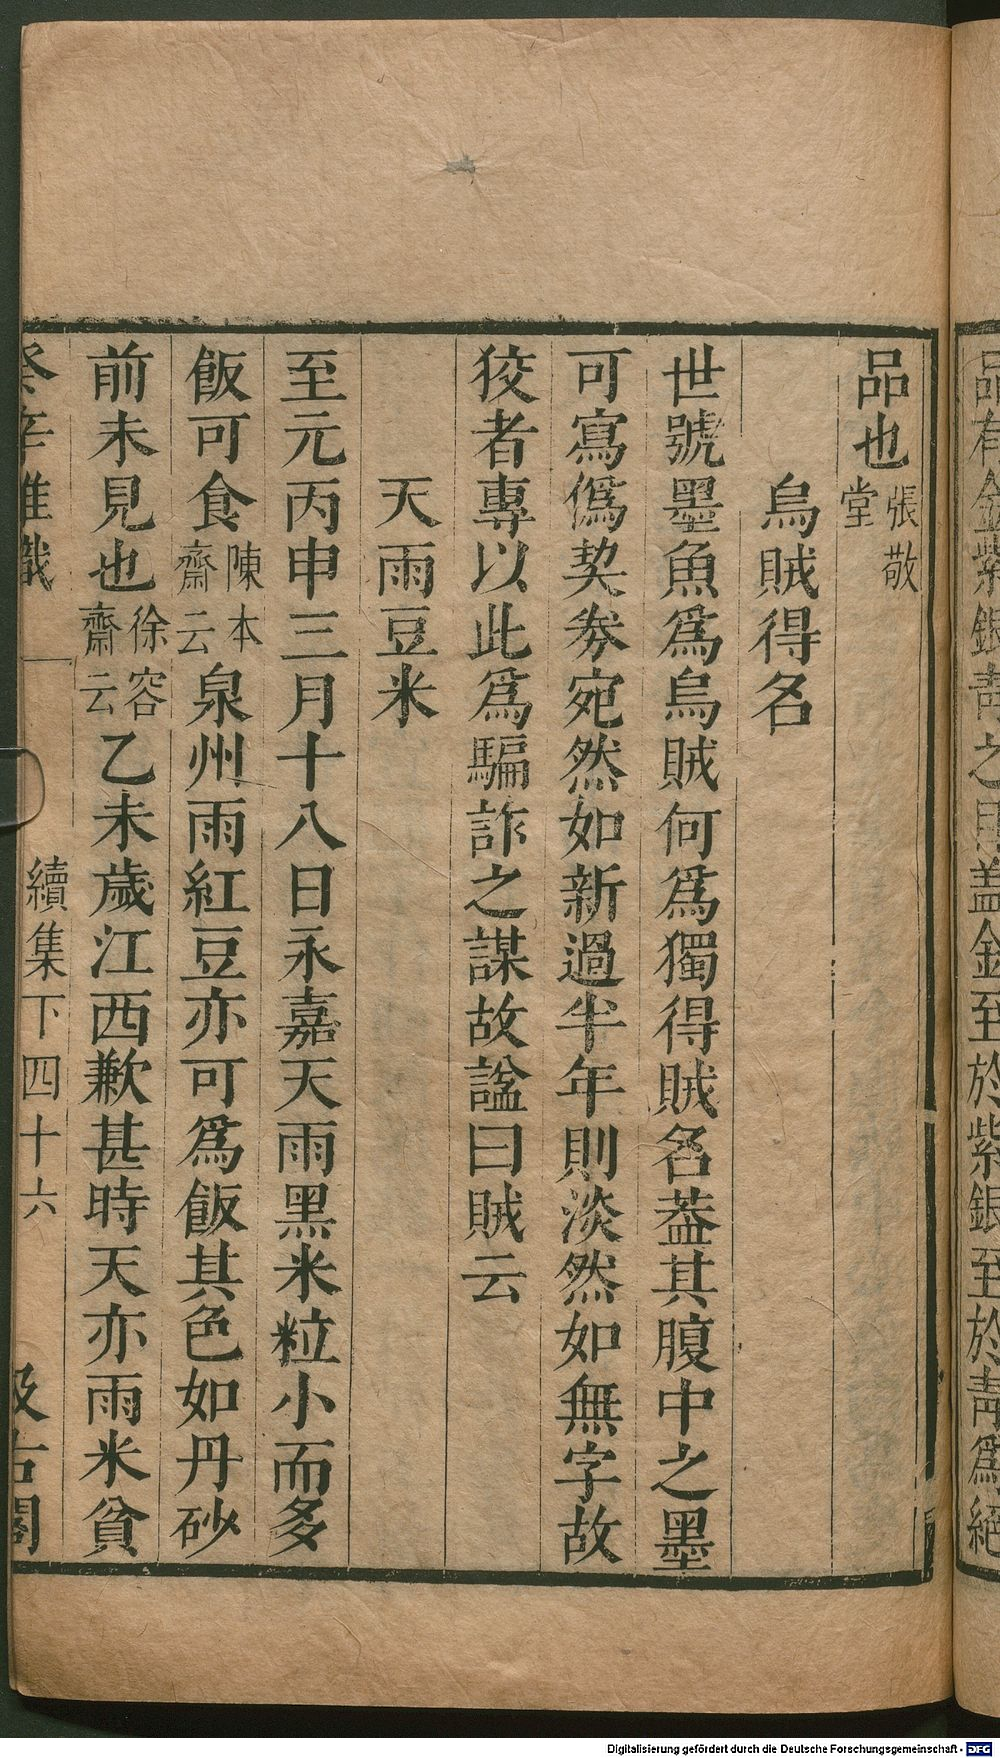 品有金紫銀青之目盖金至於紫銀至於青爲絕
品也張敬堂
烏賊得名
世號墨魚爲烏賊何爲獨得賊名葢其腹中之墨
可寫僞契劵宛然如新過半年則淡然如無字故
狡者專以此爲騙詐之謀故諡曰賊云
天雨豆米
至元丙申三月十八日永嘉天雨黑米粒小而多
飯可食陳本齋云泉州雨紅豆亦可爲飯其色如丹砂
前未見也徐容齋云乙未歲江西歉甚時天亦雨米貧
癸辛雜識 續集下 四十六 汲古閣
Digitalisierung gefördert durch die Deutsche Forschungsgemeinschaft - DFG